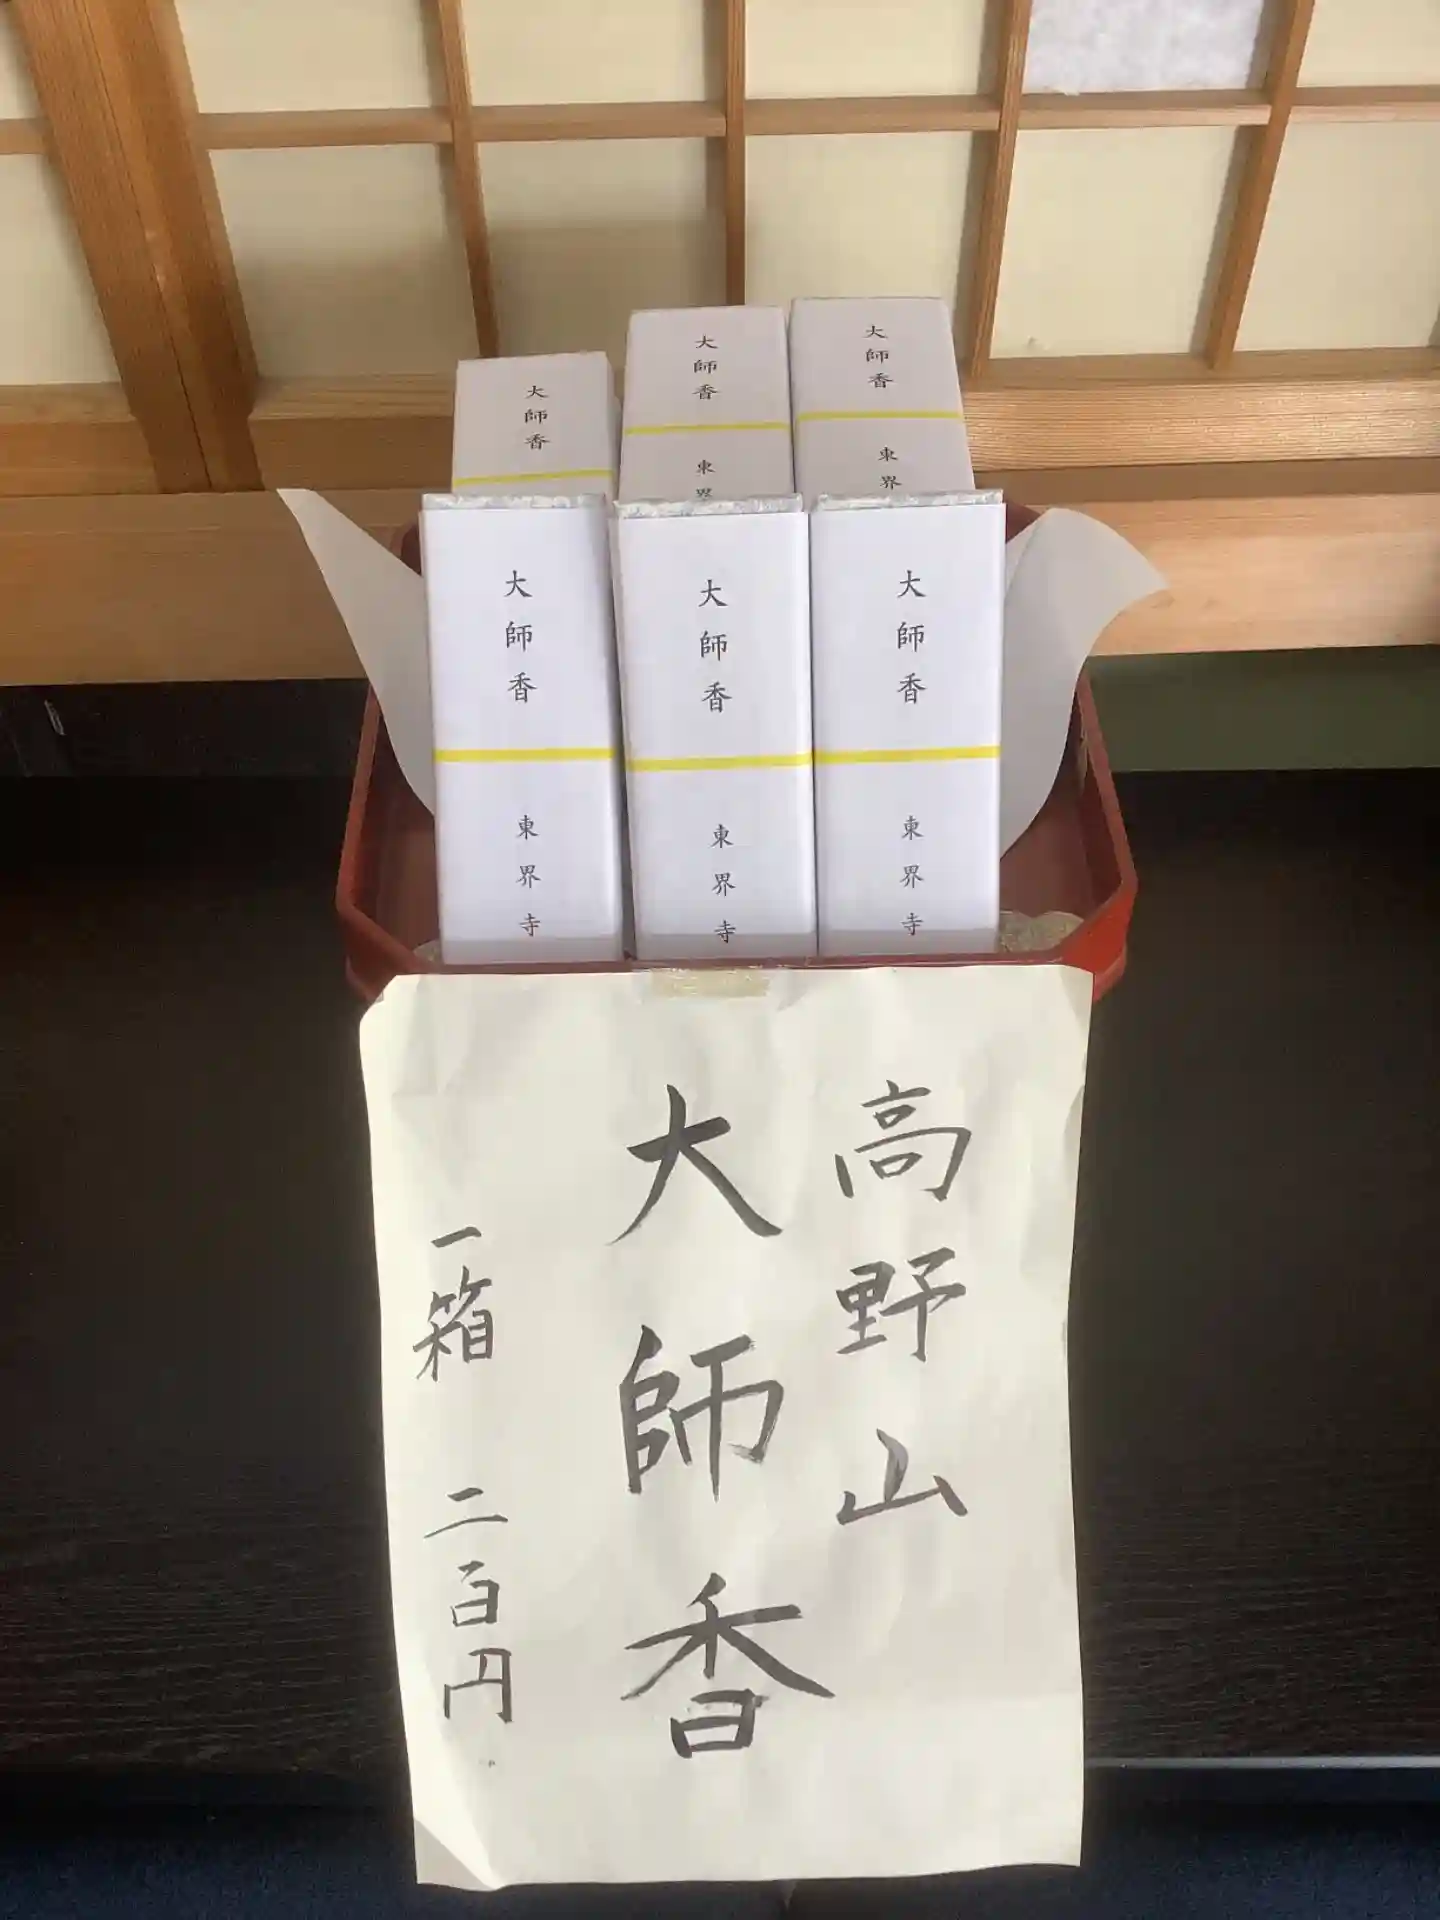 大師香
大師香
東界
大師香
東界
大師香
東界寺
大師香
東界寺
大師香
東界寺
高野山
大師香
一箱 二百円